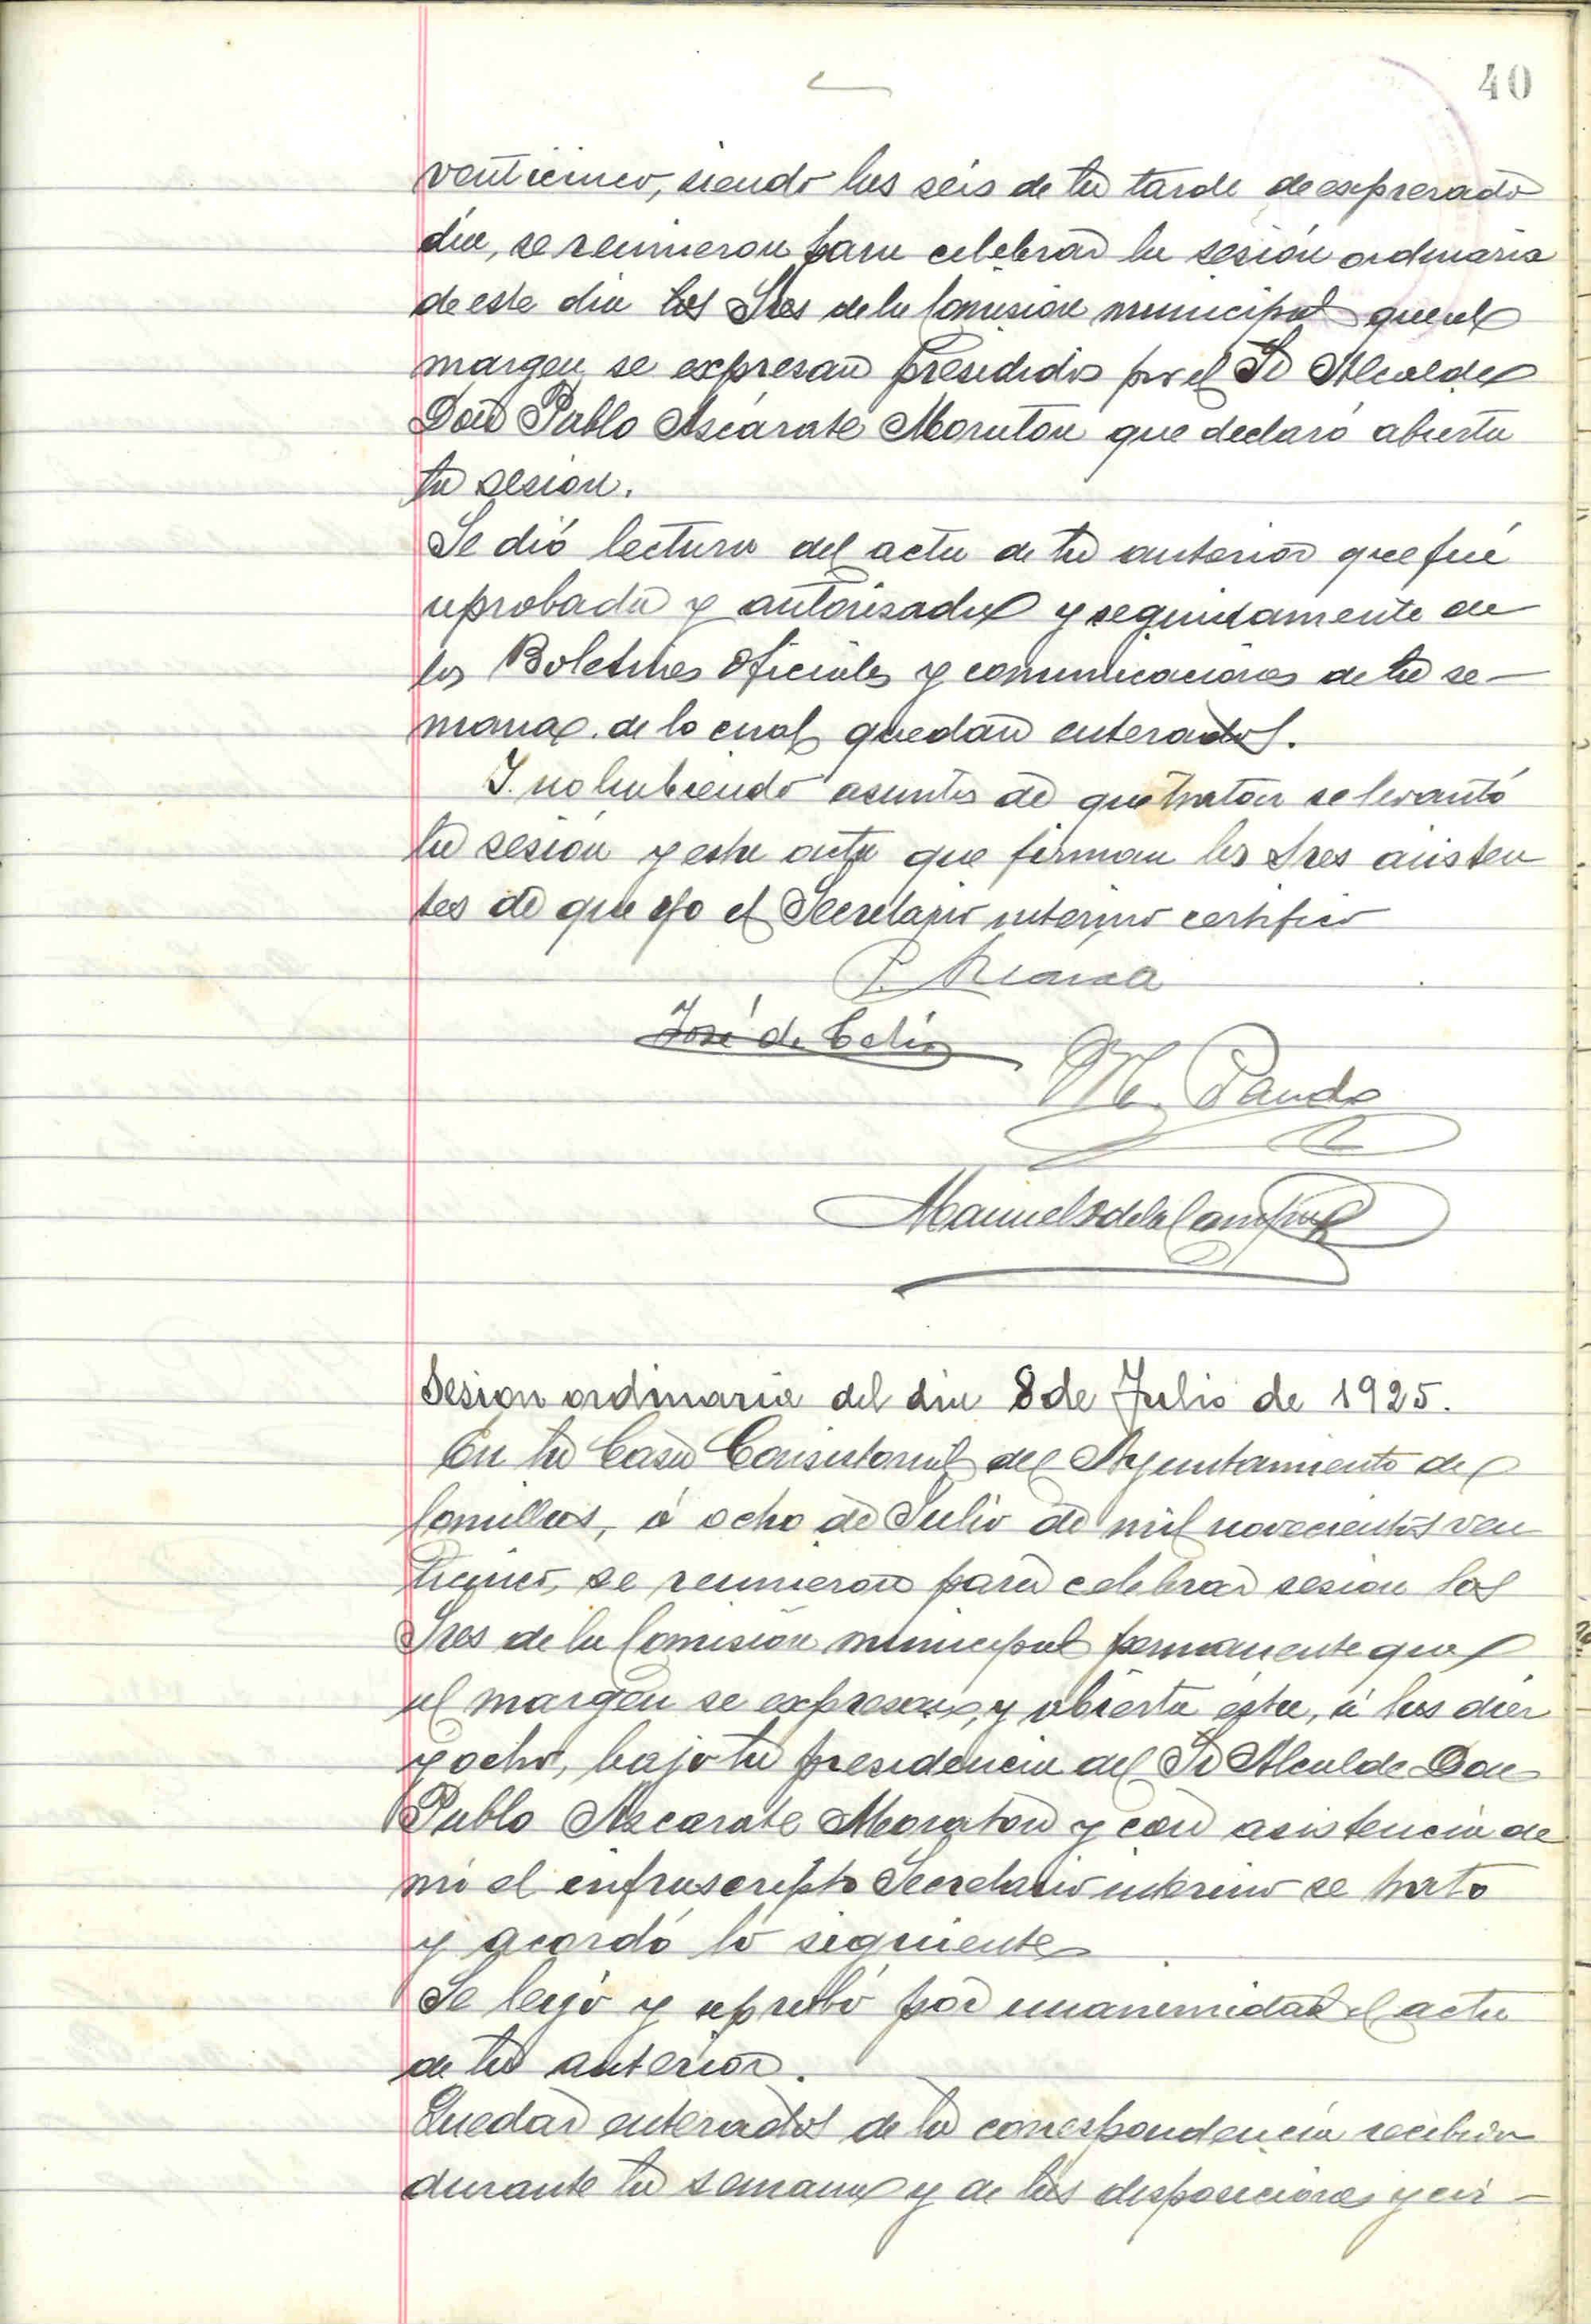 40
venticinco, siendo las seis de la tarde de espresado
día, se reunieron para celebrar la sesión ordinaria
de este día los Sres de la Comisión municipal que al
margen se expresan presididos por el Sr Alcalde
Don Pablo Ascárate Moraton que declaró abierta
la sesion.
Se dió lectura del acta de la anterior que fué
aprobada y autorisada y seguidamente de
los Boletines Oficiales y comunicaciones de la se-
mana de lo cual quedan enterados.
Y no habiendo asuntos de que tratar se levantó
la sesión y esta acta que firman los Sres asisten
tes de que yo el Secretario interino certifico
José de Celis
M. Pando
Manuel
Sesion ordinaria del dia 8 de Julio de 1925.
En la Casa Consistorial del Ayuntamiento de
Comillas, á ocho de Julio de mil novecientos ven
ticinco, se reunieron para celebrar sesion los
Sres de la Comisión municipal permanente que
al margen se expresan, y abierta ésta, á las diez
y ocho, bajo la presidencia del Sr Alcalde Don
Pablo Azcarate Moraton y con asistencia de
mi el infrascripto Secretario interino se trato
y acordó lo siguiente
Se leyó y aprobó por unanimidad el acta
de la anterior.
Quedar enterados de la correspondencia recibida
durante la semana y de las disposiciones y cir-